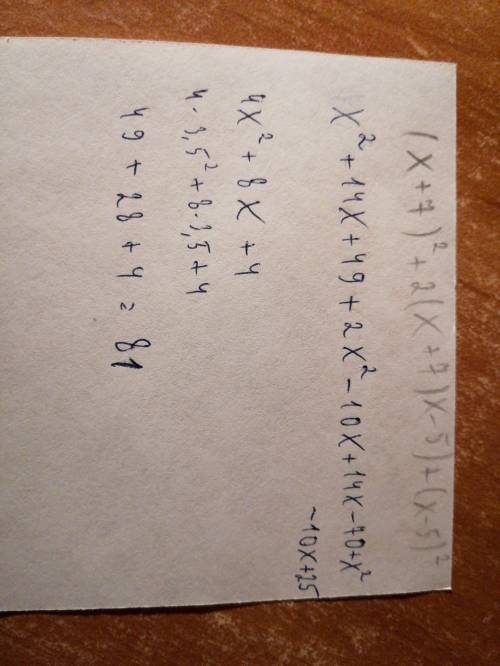 (x+7)² + 2(x+7)x-5)+(x-5)²
x² + 14x + 49 + 2x² - 10x + 14x - 70 + x²
- 10x + 25
4x² + 8x + 4
4 · 3,5² + 8 · 3,5 + 4
49 + 28 + 4 = 81